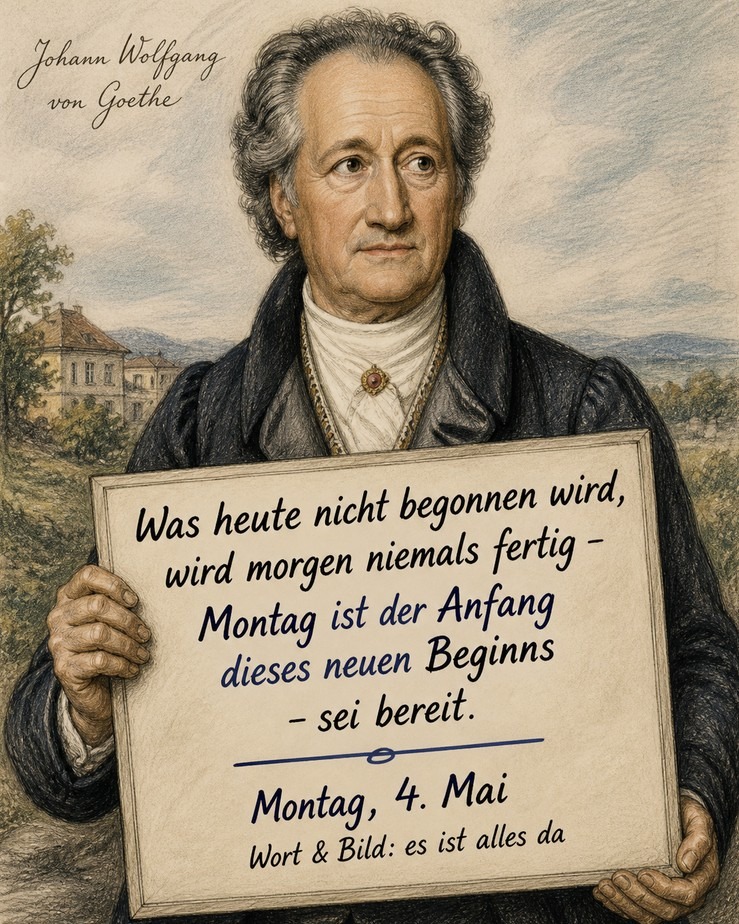 Johann Wolfgang
von Goethe
Was heute nicht begonnen wird,
wird morgen niemals fertig –
Montag ist der Anfang
dieses neuen Beginns
– sei bereit.
Montag, 4. Mai
Wort & Bild: es ist alles da